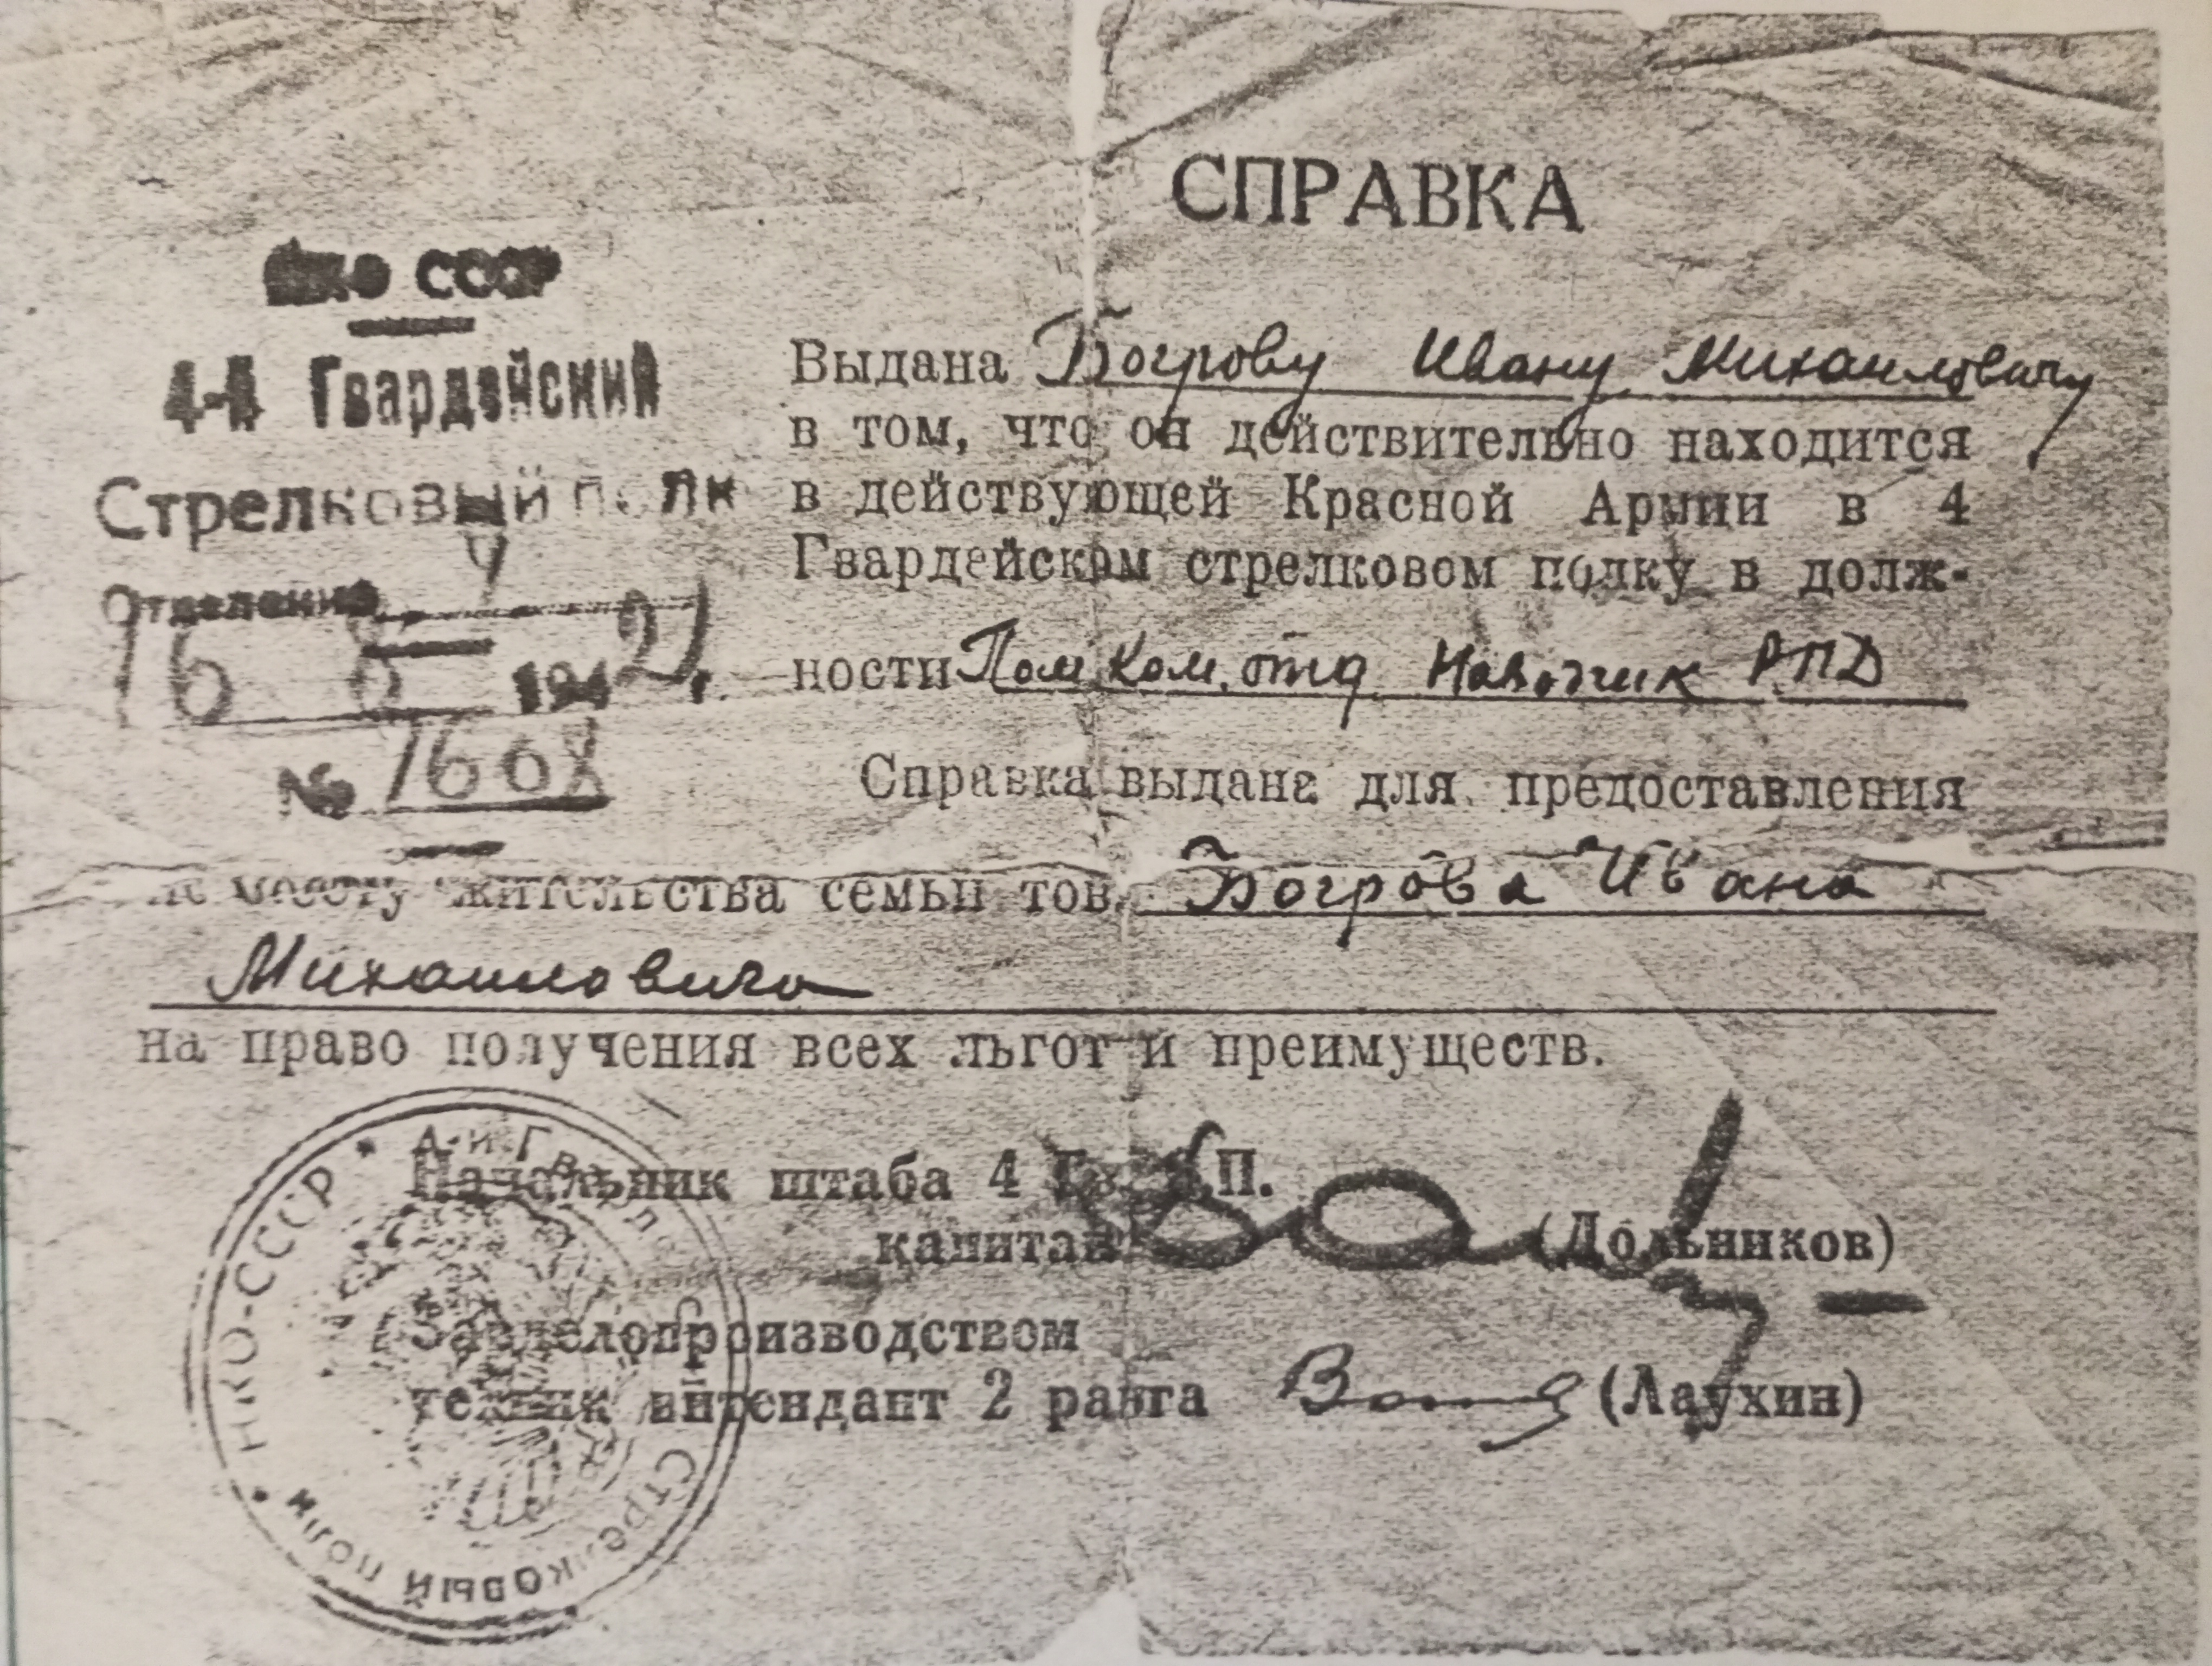 СПРАВКА
НКО СССР
4-й Гвардейский
Стрелковый полк
Отделение 4
16 6 1942 г.
№ 1608
Выдана Богрову Ивану Михаиловичу
в том, что он действительно находится
в действующей Красной Армии в 4
Гвардейском стрелковом полку в долж-
ности Пом Ком. отд Наводчик РПД
Справка выдана для предоставления
по месту жительства семьи тов. Богрова Ивана
Михаиловича
на право получения всех льгот и преимуществ.
Начальник штаба 4 Гв. С.П.
капитан (Дольников)
Зав делопроизводством
техник интендант 2 ранга (Лаухин)
НКО-СССР * 4-й Гвард. Стрелковый полк *